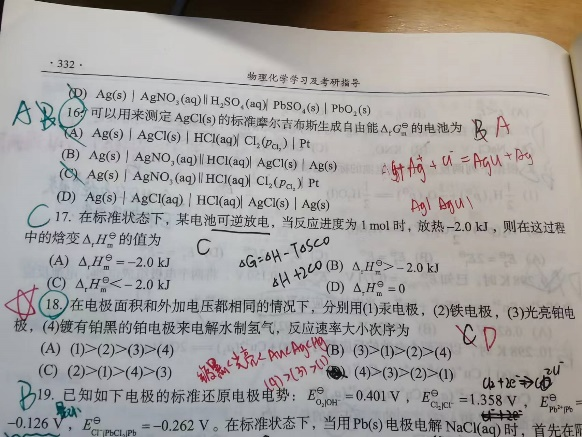 ·332·
物理化学学习及考研指导
(D) Ag(s)|AgNO₃(aq)‖H₂SO₄(aq)|PbSO₄(s)|PbO₂(s)
AB 16. 可以用来测定 AgCl(s)的标准摩尔吉布斯生成自由能 ΔfGm⊖的电池为 B A
(A) Ag(s)|AgCl(s)|HCl(aq)|Cl₂(pCl₂)|Pt
(B) Ag(s)|AgNO₃(aq)‖HCl(aq)|AgCl(s)|Ag(s)
(C) Ag(s)|AgNO₃(aq)‖HCl(aq)|Cl₂(pCl₂)|Pt
(D) Ag(s)|AgCl(s)|HCl(aq)|AgCl(s)|Ag(s)
C 17. 在标准状态下，某电池可逆放电，当反应进度为 1 mol 时，放热−2.0 kJ，则在这过程
中的焓变 ΔrHm⊖的值为 C
ΔG=ΔH-TΔS<0
ΔH+2<0
(A) ΔrHm⊖=−2.0 kJ (B) ΔrHm⊖>−2.0 kJ
(C) ΔrHm⊖<−2.0 kJ (D) ΔrHm⊖=0
18. 在电极面积和外加电压都相同的情况下，分别用(1)汞电极，(2)铁电极，(3)光亮铂电
极，(4)镀有铂黑的铂电极来电解水制氢气，反应速率大小次序为 C D
(A) (1)>(2)>(3)>(4) (B) (3)>(1)>(2)>(4)
(C) (2)>(1)>(4)>(3) (4)>(3)>(2)>(1)
B 19. 已知如下电极的标准还原电极电势：E⊖O₂|OH⁻=0.401 V，E⊖Cl₂|Cl⁻=1.358 V，E⊖Pb²⁺|Pb=
−0.126 V，E⊖Cl⁻|PbCl₂|Pb=−0.262 V。在标准状态下，当用 Pb(s)电极电解 NaCl(aq)时，首先在